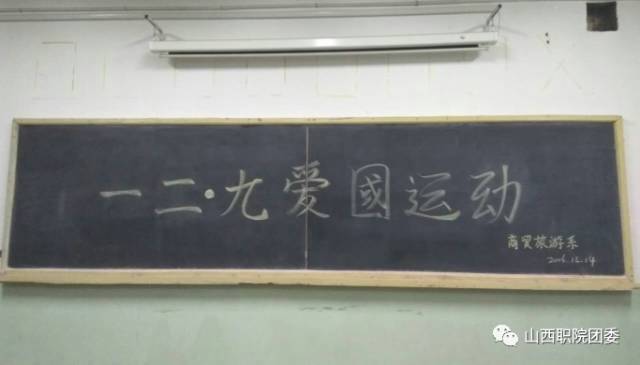 一二·九爱國运动
商贸旅游系
2016.12.14
山西职院团委